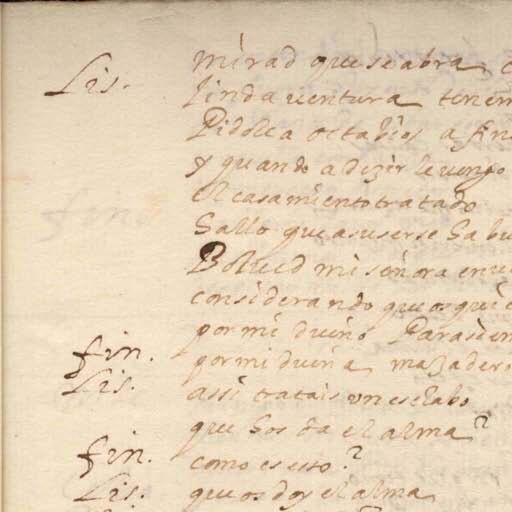 mirad que se abra
Lis. linda ventura tenem
Pidole a octabio a fine
y quando a dezirle vengo
el casamiento tratado
hallo que a su ser se ha bu
Bolued mi señora en u
considerando que os qui
por mi dueño Para siem
fin. por mi dueña, majadero
Lis. assi tratais un esclabo
que hos da el alma?
fin. como es esto?
Lis. que os doy el alma